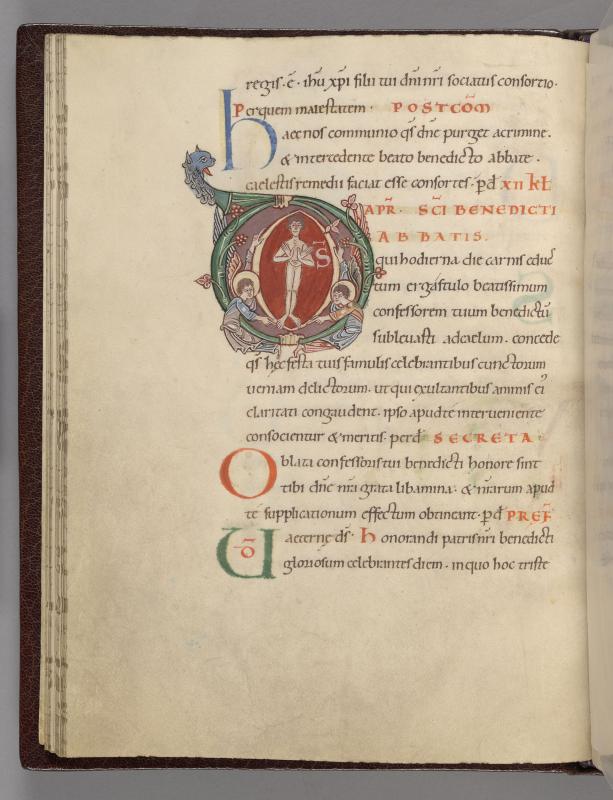 regis · ē · ihu xpi filii tui dni nri sociatus consortio ·
Per quem maiestatem · POSTCOM̄
haec nos communio qs dne purget a crimine ·
& intercedente beato benedicto abbate ·
caelestis remedii faciat esse consortes · pd̄ XII kł
APR̄ · SC̄I BENEDICTI
ABBATIS ·
DS̄ qui hodierna die carnis educ
tum ergastulo beatissimum
confessorem tuum benedictū
sublevasti ad caelum · concede
qs hęc festa tuis famulis celebrantibus cunctorum
ueniam delictorum · ut qui exultantibus animis ei
claritati congaudent · ipso apud te interueniente
consocientur & meritis · perd̄ SECRETA ·
Oblata confessoris tui benedicti honore sint
tibi dne nra grata libamina · & nrarum apud
te supplicationum effectum obtineant · pd̄ PREF̄
UD̄ aeternę ds · honorandi patris nri benedicti
gloriosum celebrantes diem · in quo hoc triste